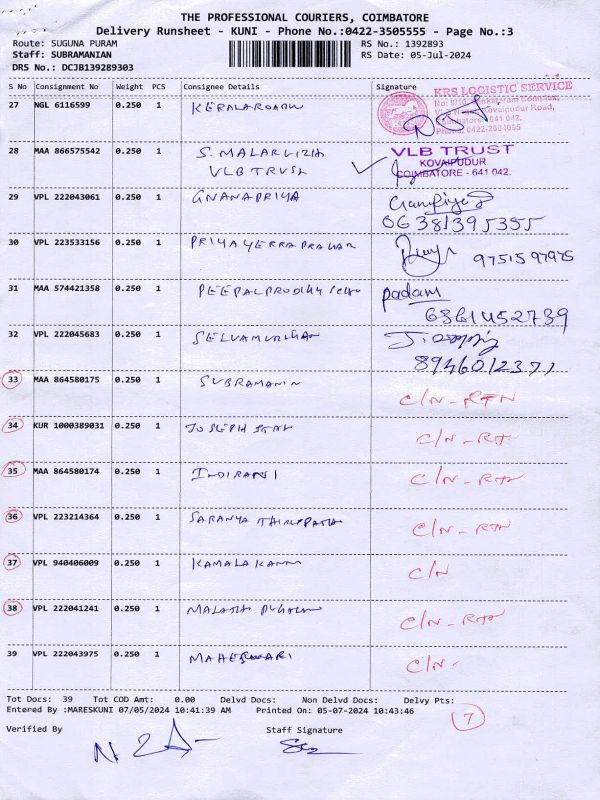 THE PROFESSIONAL COURIERS, COIMBATORE
Delivery Runsheet - KUNI - Phone No.:0422-3505555 - Page No.:3
Route: SUGUNA PURAM RS No.: 1392893
Staff: SUBRAMANIAN RS Date: 05-Jul-2024
DRS No.: DCJB139289303
S No Consignment No Weight PCS Consignee Details Signature
KRS LOGISTIC SERVICE
27 NGL 6116599 0.250 1
Coimbatore - 641 042.
Phone: 0422-2604055
28 MAA 866575542 0.250 1 S. MALARVIZIA VLB TRUST
VLB TRUST KOVAIPUDUR
COIMBATORE - 641 042.
29 VPL 222043061 0.250 1 GNANAPRIYA
06381395355
30 VPL 223533156 0.250 1 9751597975
31 MAA 574421358 0.250 1 padam
6361452739
32 VPL 222045683 0.250 1 SELVAMURUGAN
8946012371
33 MAA 864580175 0.250 1 SUBRAMANIN C/N - RTN
34 KUR 1000389031 0.250 1 JOSEPH C/N - RTN
35 MAA 864580174 0.250 1 INDIRANI C/N - RTN
36 VPL 223214364 0.250 1 SARANYA C/N - RTN
37 VPL 940406009 0.250 1 KAMALA KANN C/N
38 VPL 222041241 0.250 1 C/N - RTN
39 VPL 222043975 0.250 1 MAHESWARI C/N -
Tot Docs: 39 Tot COD Amt: 0.00 Delvd Docs: Non Delvd Docs: Delvy Pts:
Entered By :MARESKUNI 07/05/2024 10:41:39 AM Printed On: 05-07-2024 10:43:46
7
Verified By Staff Signature